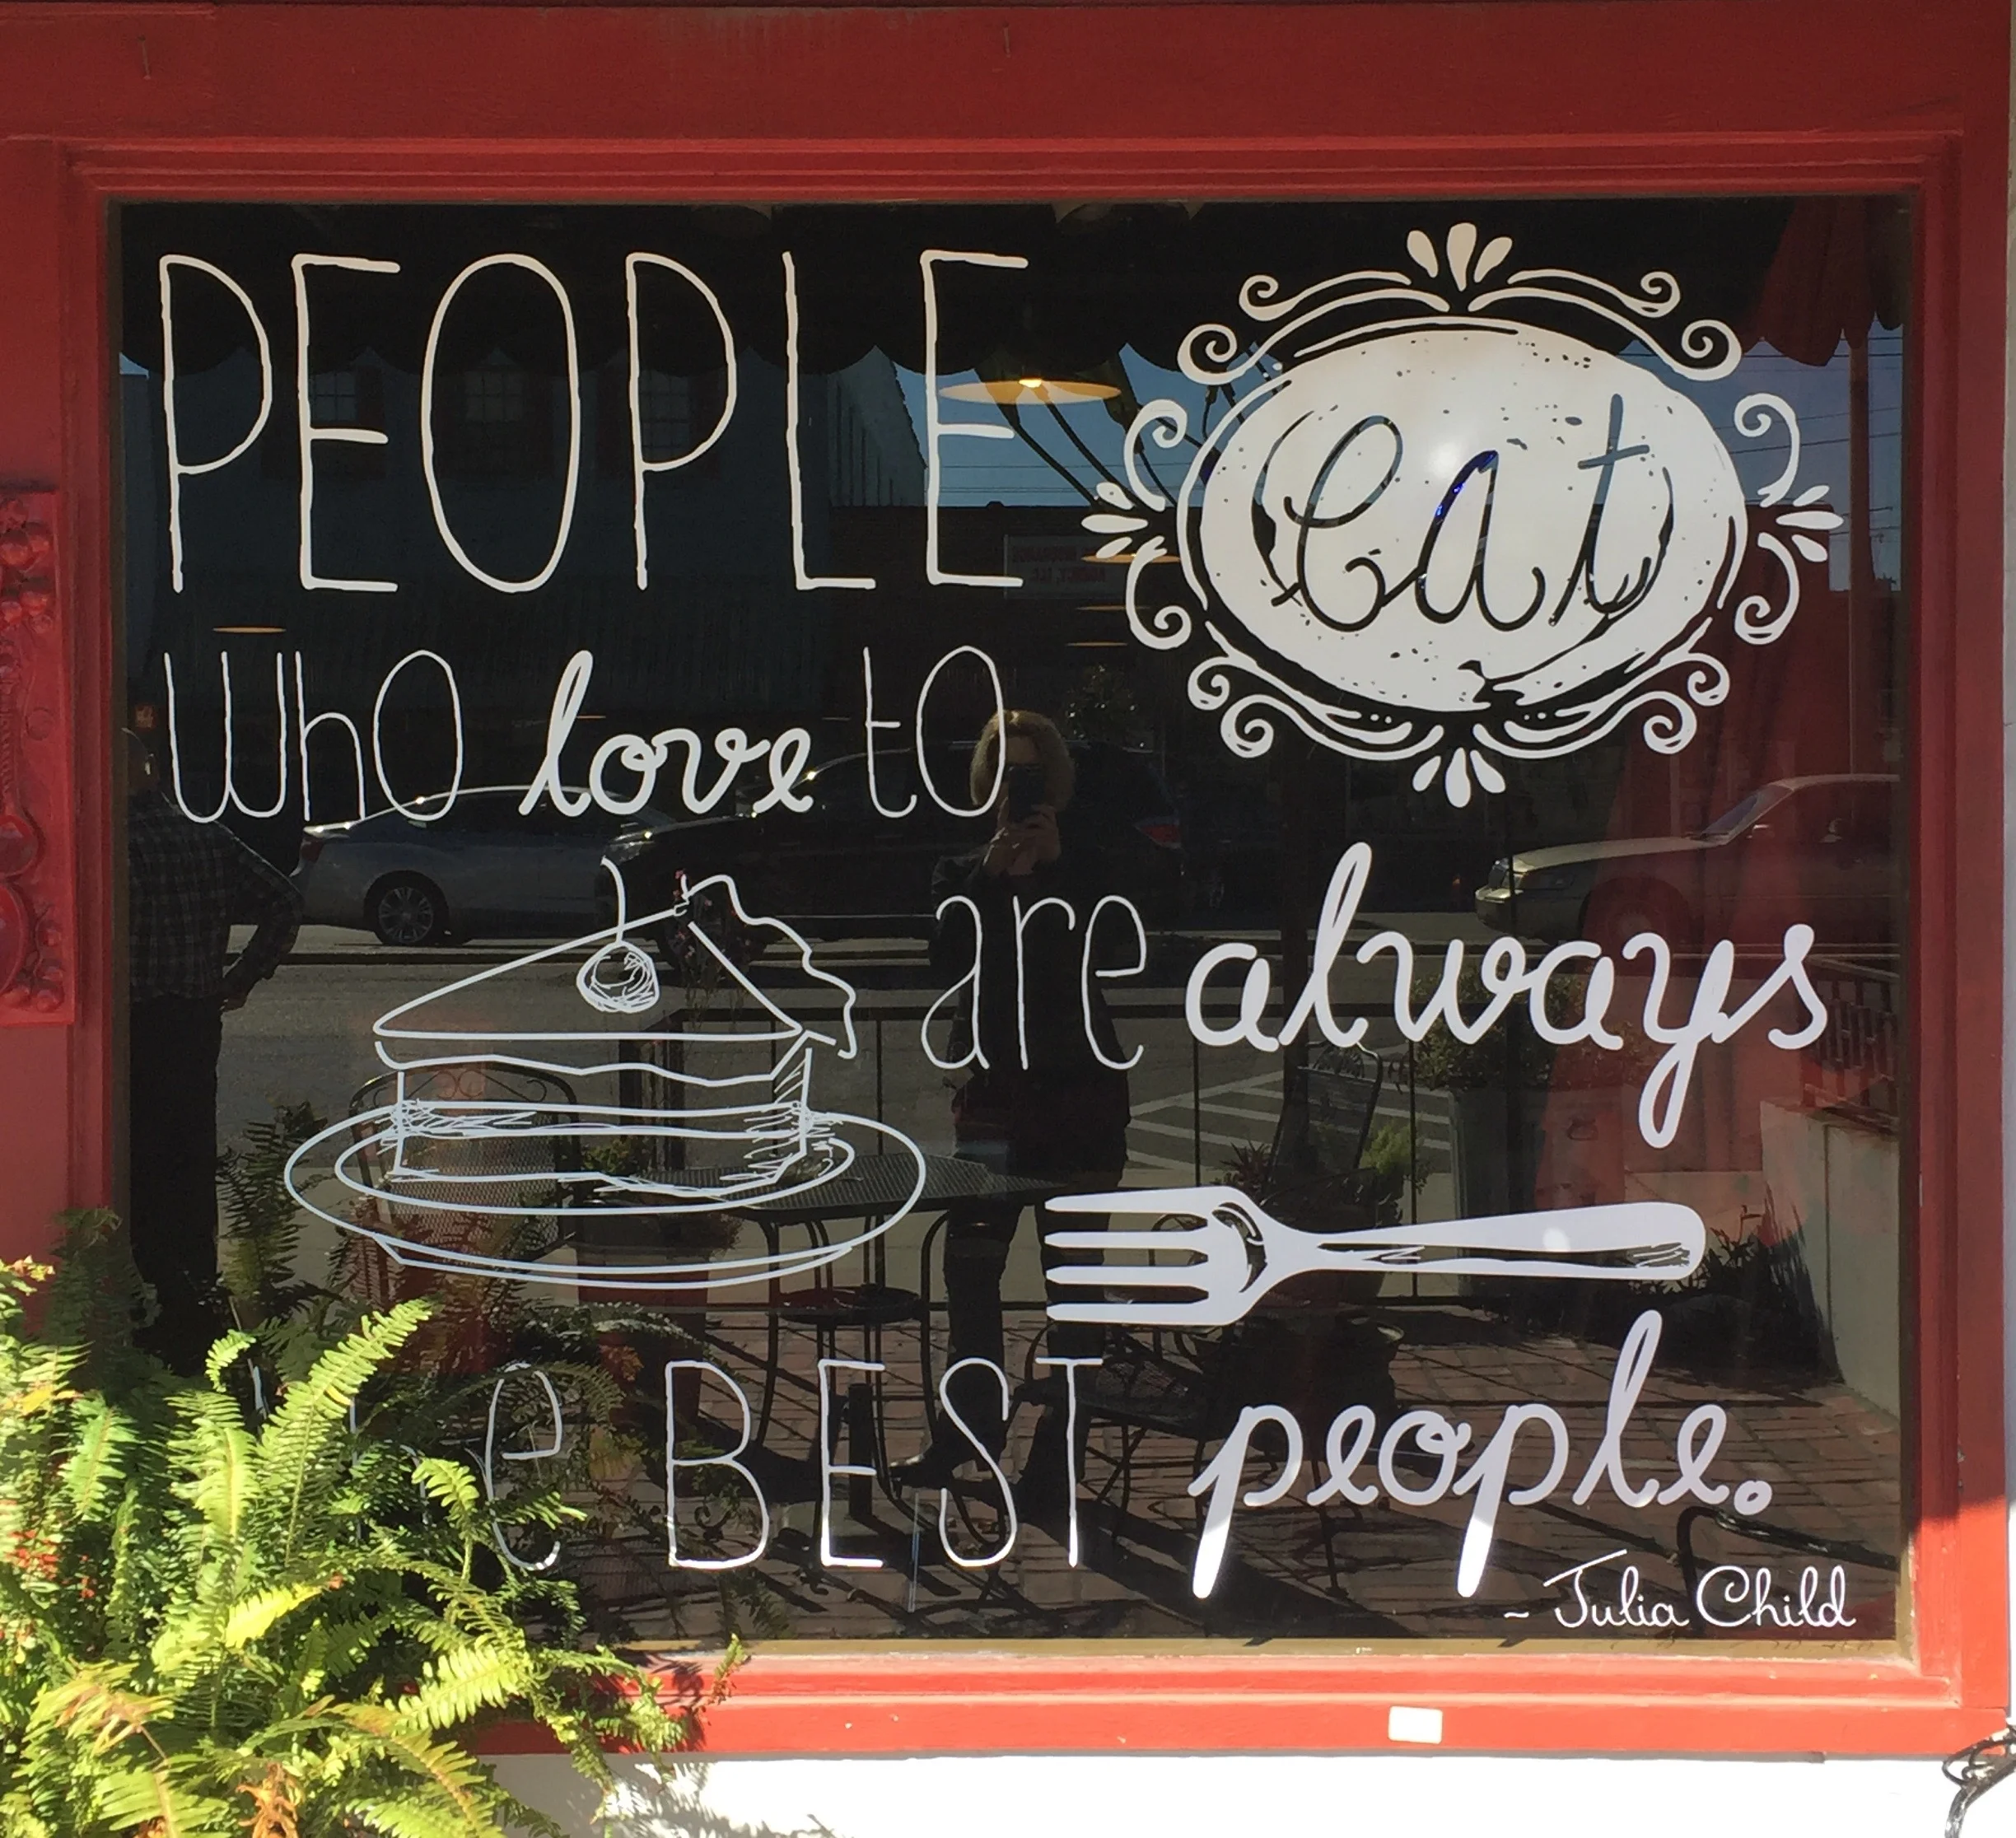 PEOPLE
who love to
eat
are always
e BEST people.
~ Julia Child